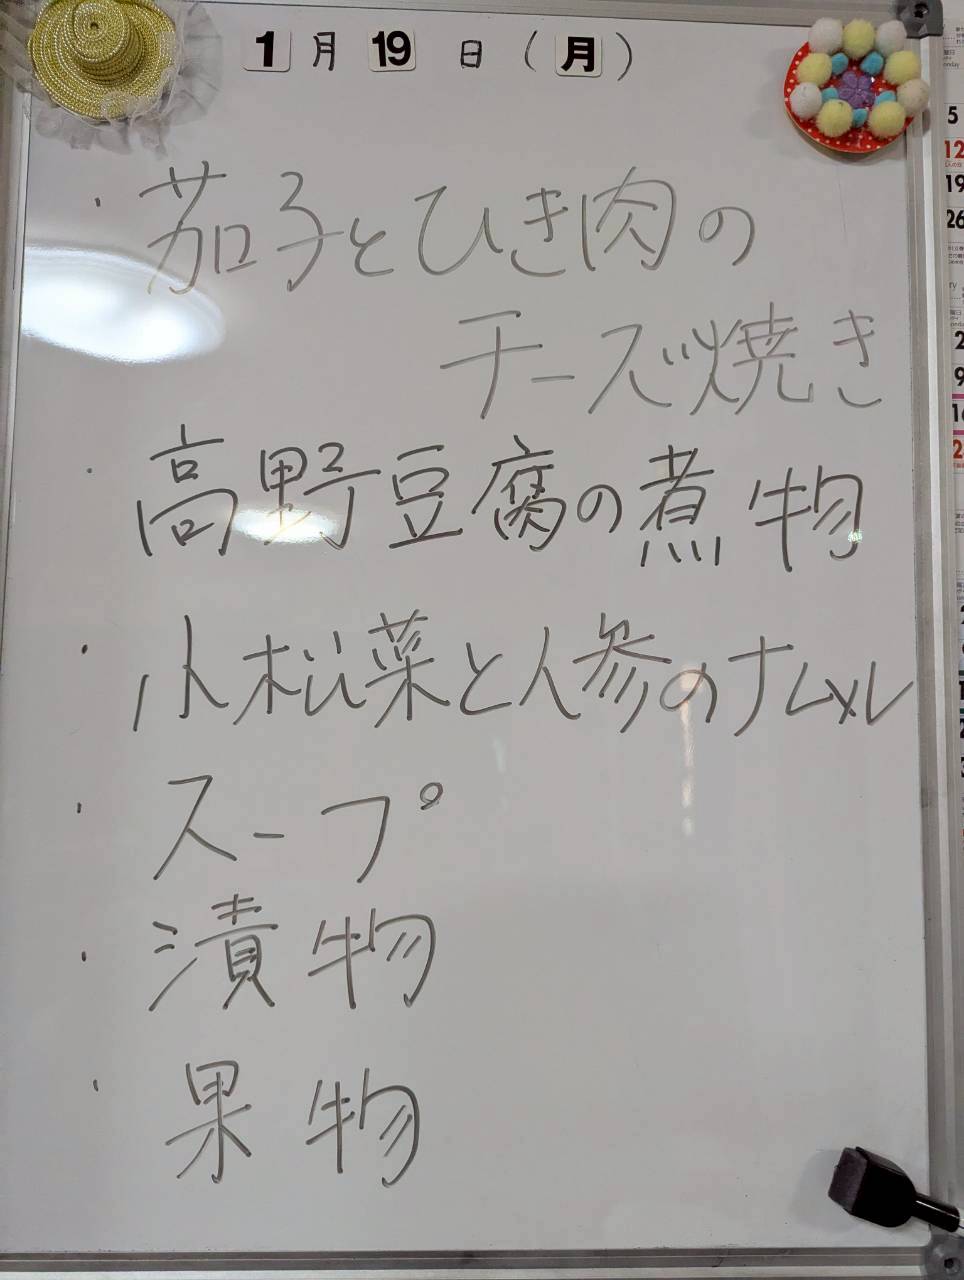 1月19日(月)
・茄子とひき肉の
チーズ焼き
・高野豆腐の煮物
・小松菜と人参のナムル
・スープ
・漬物
・果物
5
12
19
26